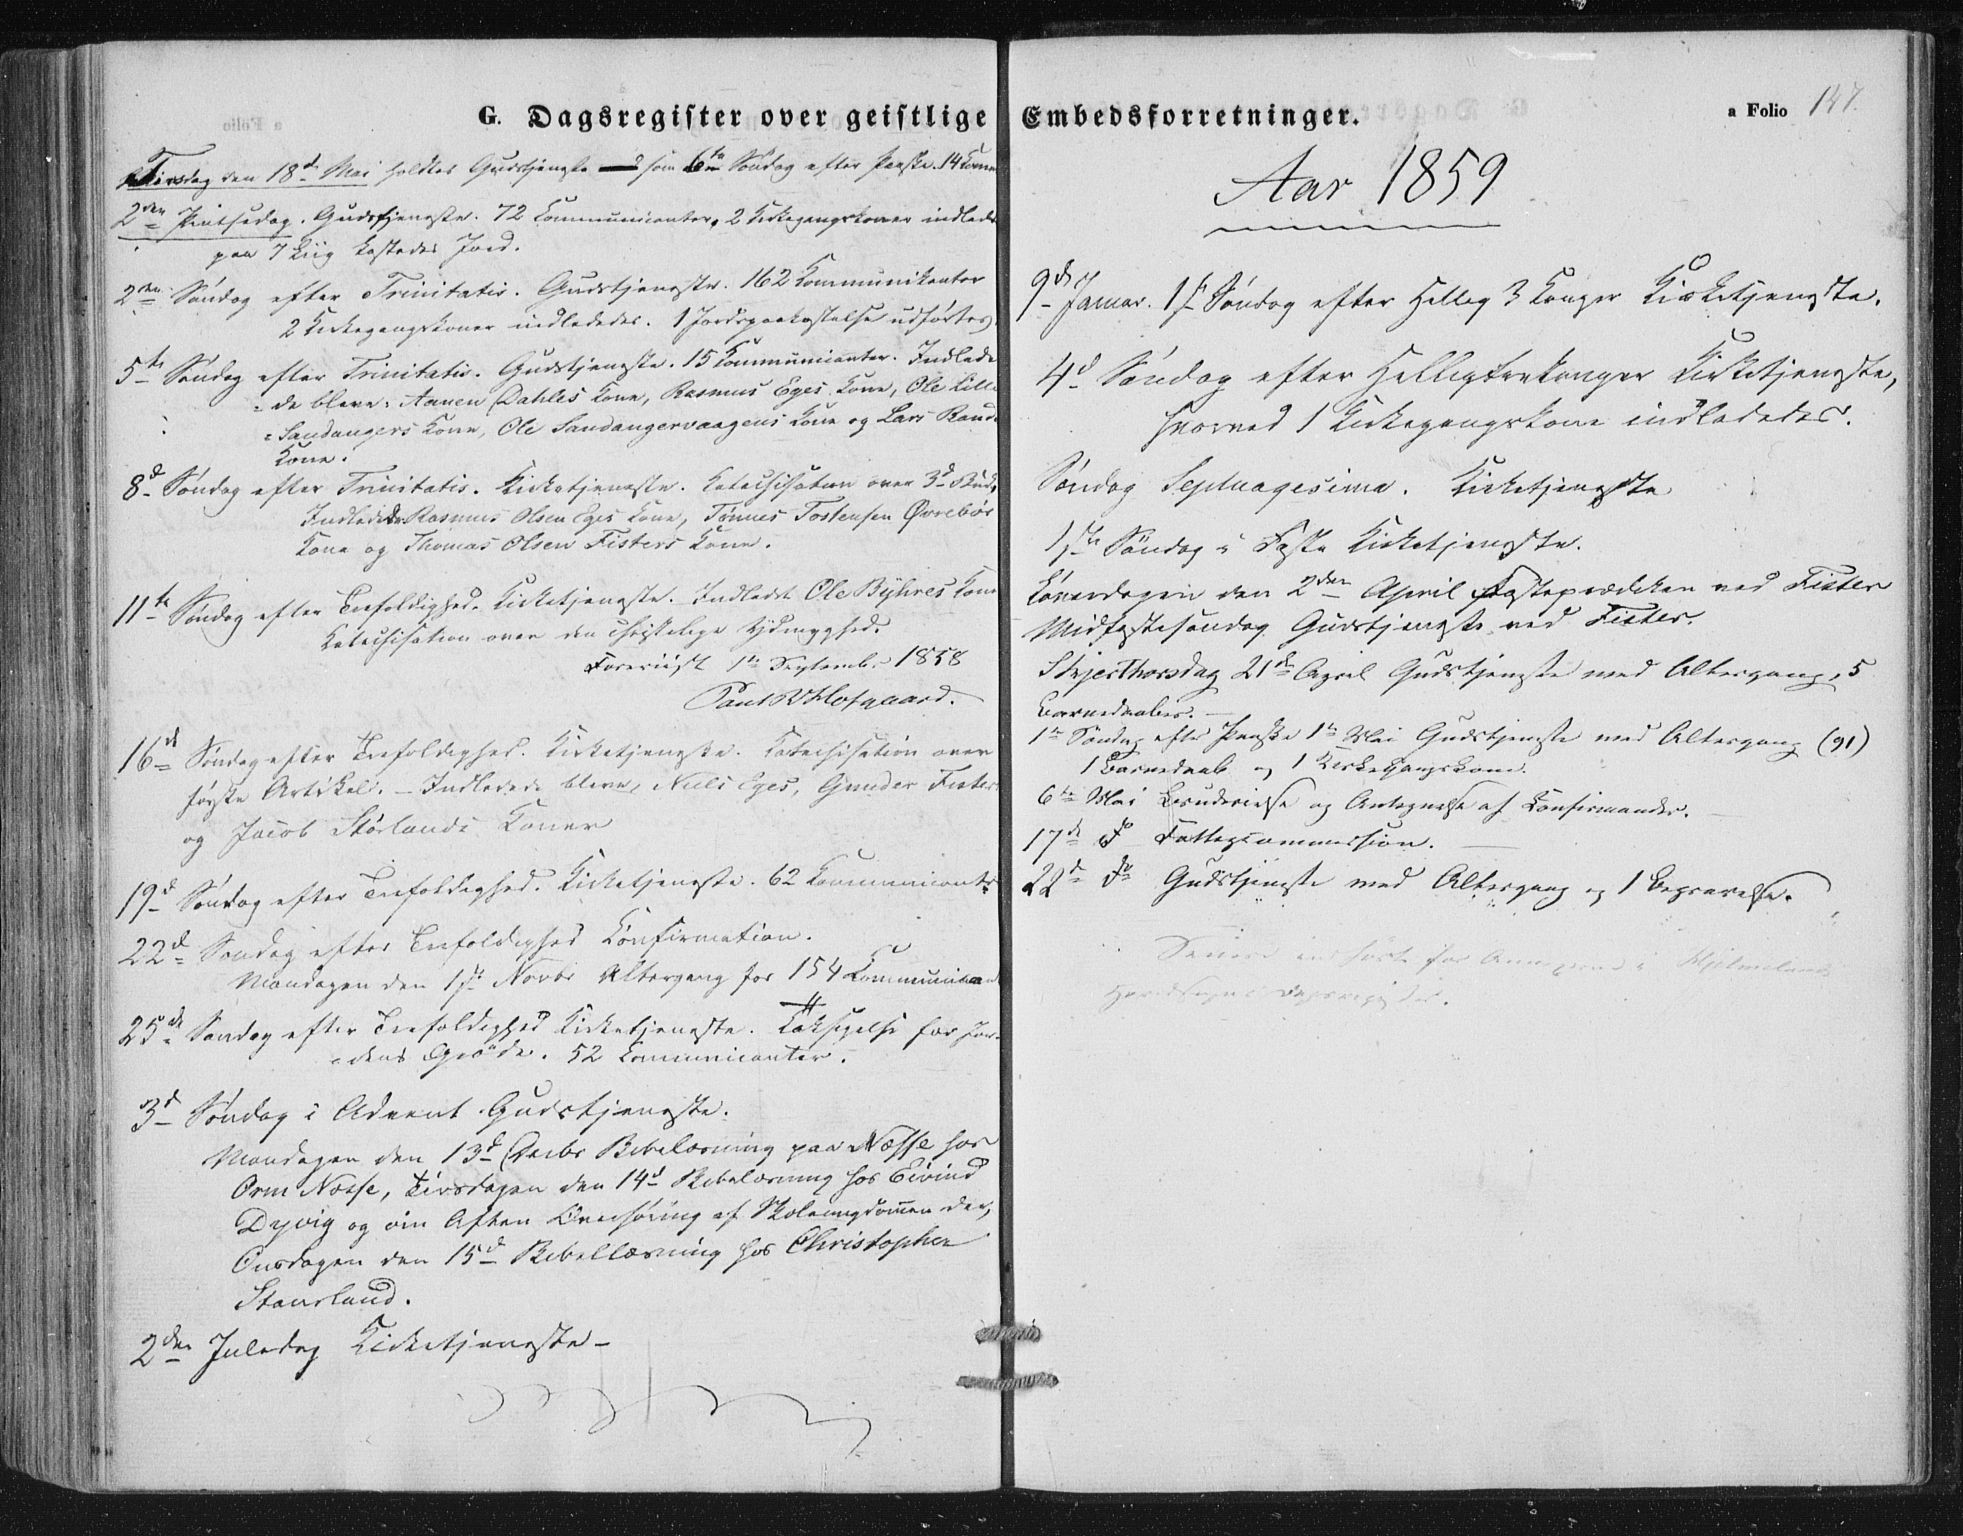 G. Dagsregister over geistlige
Tirsdag den 18d Mai holdtes Gudstjeneste som 6te Søndag efter Paaske. 14 Comm
2den Pintsedag. Gudstjeneste. 72 Communicanter. 2 Kirkegangskoner indlededes
paa 7 Liig kastedes Jord.
2den Søndag efter Trinitatis. Gudstjeneste. 162 Kommunikanter
2 Kirkegangskoner indlededes. 1 Jordspaakastelse udførtes.
5te Søndag efter Trinitatis. Gudstjeneste. 15 Communicanter. Indlede
de bleve: Aanen Dahles Kone, Rasmus Eges Kone, Ole Lille
Sandangers Kone, Ole Sandangervaagens Kone og Lars Rands
Kone.
8d Søndag efter Trinitatis. Kirketjeneste. Katechisation over 3d Bud.
Indledede Rasmus Olsen Eges Kone, Tønnes Tostensen Øvrebøs
Kone og Thomas Olsen Fisters Kone.
11te Søndag efter Trefoldighed. Kirketjeneste. Indledt Ole Byhres Kone
Katechisation over den christelige Ydmyghed.
Foreviist 1te Septembr 1858
Paul V Hofgaard.
16de Søndag efter Trefoldighed. Kirketjeneste. Katechisation over
første Artikel. – Indledede bleve, Niels Eges, Gunder Fisters
og Jacob Størlands Koner
19d Søndag efter Trefoldighed. Kirketjeneste. 62 Kommunicants
22d Søndag efter Trefoldighed Confirmation.
Mandagen den 1ste Novbr Altergang for 154 Communican
25de Søndag efter Trefoldighed Kirketjeneste. Taksigelse for Jor-
dens Grøde. 52 Communicanter.
3d Søndag i Advent Gudstjeneste.
Mandagen den 13d Decbr Bibelæsning paa Næsse hos
Orm Næsse, Tirsdagen den 14d Bibelæsning hos Eivind
Dyvig og om Aften Overhøring af Skoleungdommen der,
Onsdagen den 15d Bibellæsning hos Christopher
Stansland.
2den Juledag Kirketjeneste –
Embedsforretninger.
a Folio 147.
Aar 1859
9de Januar. 1ste Søndag efter Hellig 3 Konger Kirketjeneste.
4d Søndag efter Helligtrekonger Kirketjeneste,
hvorved 1 Kirkegangskone indlededes.
Søndag Septuagesima. Kirketjeneste
1ste Søndag i Faste Kirketjeneste.
Løverdagen den 2den April Fasteprædiken ved Fister
Midfastesøndag Gudstjeneste ved Fister.
Skjerthorsdag 21de April Gudstjeneste med Altergang, 5
Barnedaaber. –
1te Søndag efter Paaske 1te Mai Gudstjeneste med Altergang (91)
1 Barnedaab og 1 Kirkegangskone.
6te Mai Landevielse og Antegnelse af Confirmander.
17de do Fattigcommission.
22de do Gudstjeneste med Altergang og 1 Begravelse.
Senere indført for Annexerne i Hjelmelands
Hovedsogns Dagsregister.